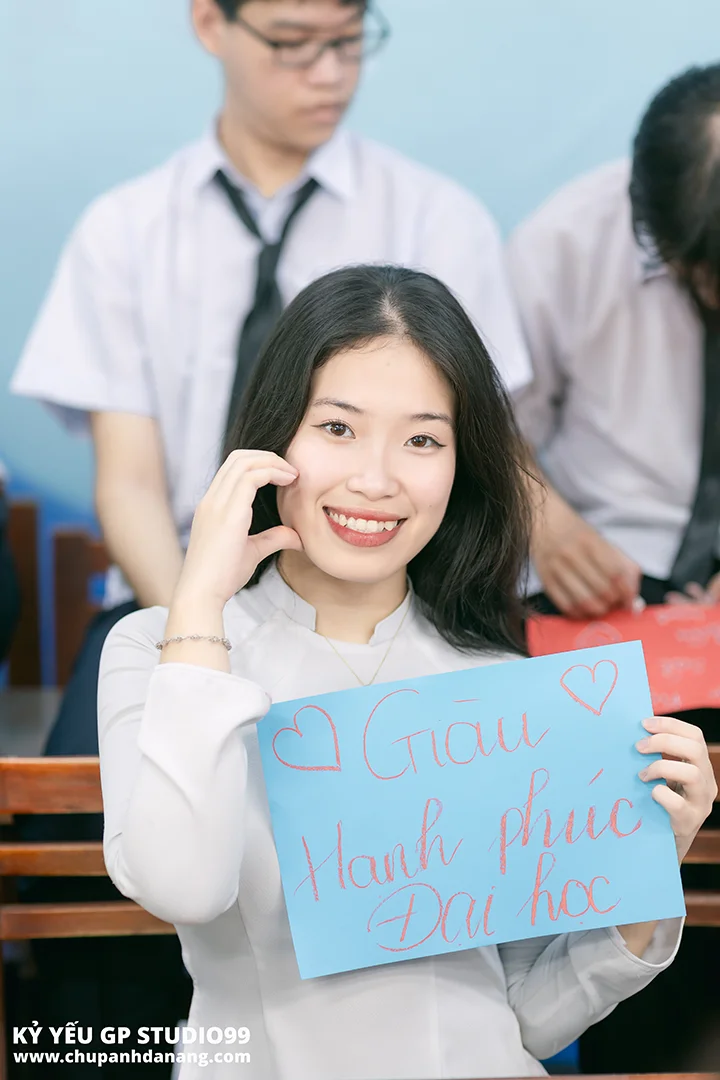 Giàu
Hanh phúc
Đại học
KỶ YẾU GP STUDIO99
www.chupanhdanang.com